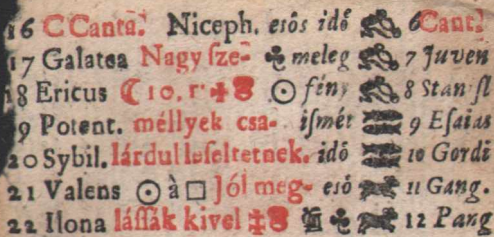 16 C Canta. Niceph. esős idő 6 Cant.
17 Galatea Nagy ſze- meleg 7 Juven
18 Ericus ☾ 10, r ☉ fény 8 Staniſl
19 Potent. méllyek csa- iſmét 9 Eſaias
20 Sybil. lárdul leſeltetnek. idő 10 Gordi
21 Valens ☉ à □ Jól meg- eső 11 Gang.
22 Ilona láſſák kivel 12 Pang